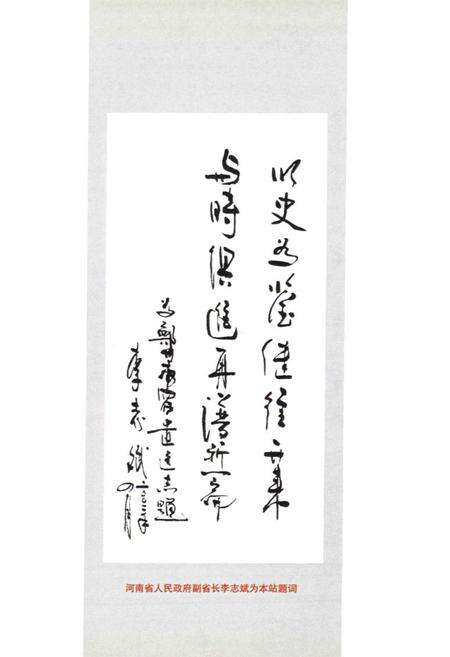 以史为鉴继往开来
与時俱進再譜新篇
为鄭州南
志題
李志斌
二〇〇二年
四月
河南省人民政府副省长李志斌为本站题词